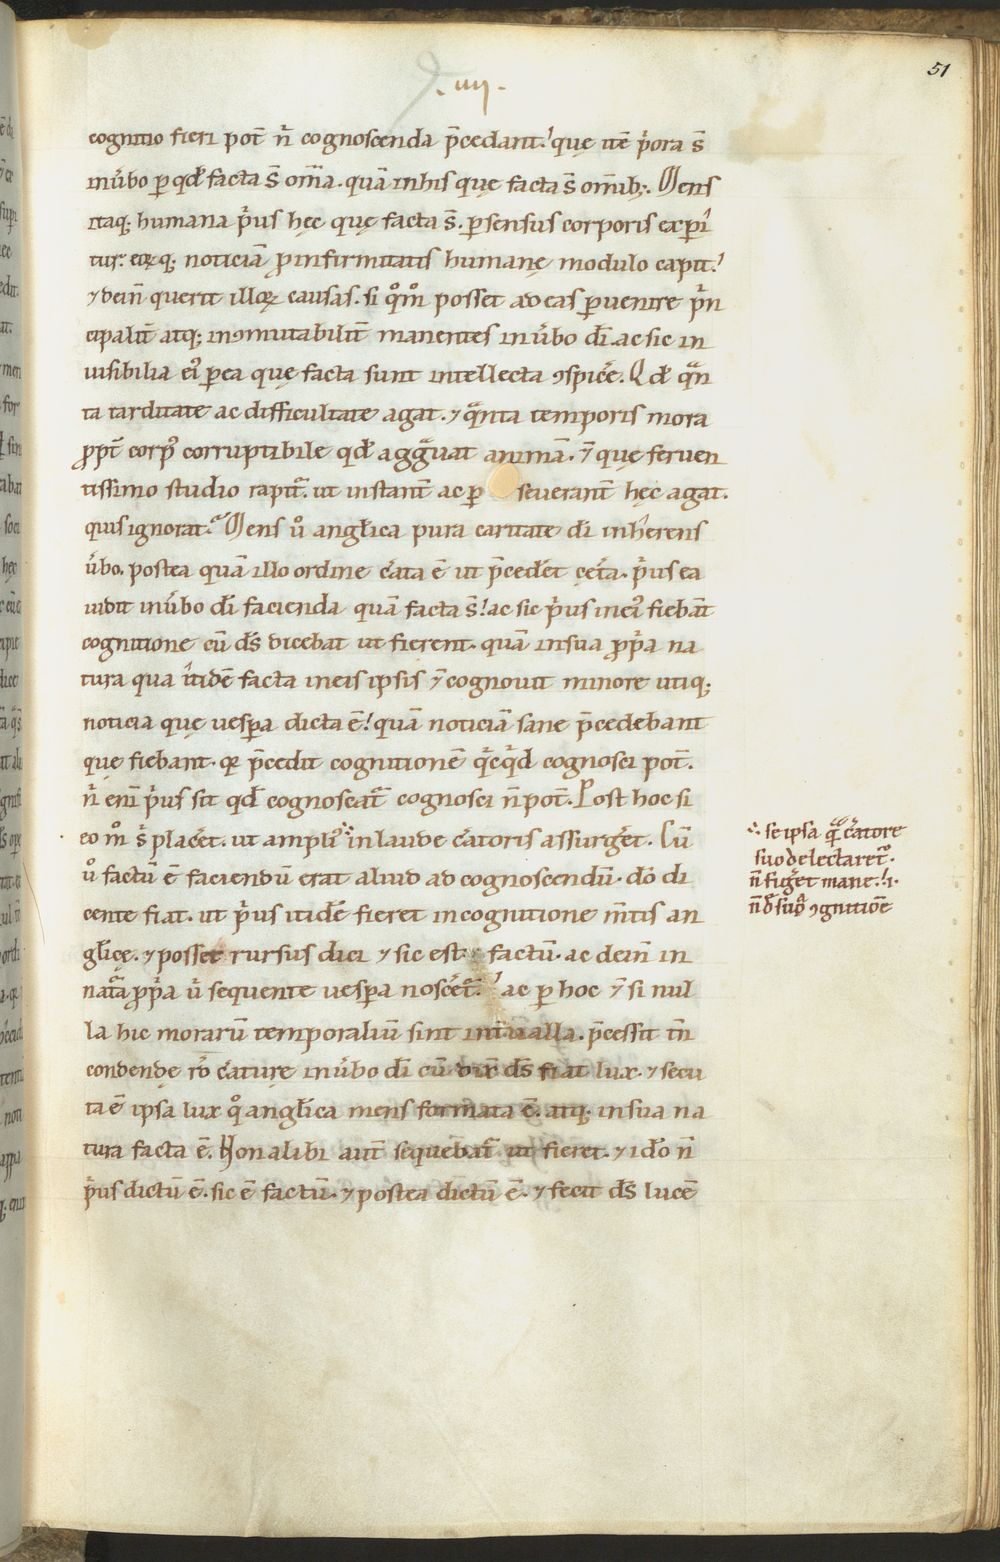 51
.iiij.
cognitio fieri pot̄ n̄ cognoscenda p̄cedant. quę itē pͥora s̄
inu̓bo ꝑ qd̓ facta s̄ om̄ia. quā inhis quę facta s̄ om̄ib;. Mens
itaq; humana pͥus hęc quę facta s̄. ꝑ sensus corporis exꝑi
tur. eoꝝq; noticiā ꝓ infirmitatis humanę modulo capit.
⁊ dein̄ querit illoꝝ causas. si qͦm̊ posset ad eas ꝑuenire pͥn
cipalit̄ atq; inꝯmutabilit̄ manentes inu̓bo dī. ac sic in
uisibilia eiꝰ ꝑ ea quę facta sunt intellecta ꝯspicē̓. Qd̓ qͣn
ta tarditate ac difficultate agat. ⁊ qͣnta temporis mora
ꝓpt̄ corpꝰ corruptibile qd̓ aggͣuat animā. ⁊̄ quę feruen
tissimo studio rapit᷑. ut instant̄ ac ꝑ seuerant̄ hęc agat.
quis ignorat. Mens u̓o anglica pura caritate dī inhͤrens
u̓bo. postea quā illo ordine c̓ata ē ut p̄ced̓et cęt̓a. pͥus ea
uidit inu̓bo dī facienda quā facta s̄. ac sic pͥus ineiꝰ fiebāt
cognitione cū ds̄ dicebat ut fierent. quā insua ꝓpͥa na
tura qua itidē facta ineis ipsis ⁊̄ cognouit minore utiq;
noticia quę uesꝑa dicta ē. quā noticiā sane p̄cedebant
quę fiebant. qꝛ p̄cedit cognitionē qͥcqͥd cognosci pot̄.
n̄ eni pͥus sit qd̓ cognoscat᷑ cognosci n̄ pot̄. Post hoc si
eo m̊ sͥ placet̓. ut ampliꝰ inlaude c̓atoris assurget̓. Cū
u̓o factū ē faciendū erat aliud ad cognoscendū. do̓ di
cente fiat. ut pͥus itidē fieret incognitione m̄tis an
glicę. ⁊ posset rursus dici ⁊ sic est factū. ac dein̄ in
nat̓a ꝓpͥa u̓ sequente uesꝑa nosc̓et᷑. ac ꝑ hoc ⁊̄ si nul
la hic morarū temporaliū sint int̓ualla. p̄cessit tn̄
condendę ro̓ c̓aturę inu̓bo dī cū dix̄ ds̄ fiat lux. ⁊ secu
ta ē ipsa lux qͦ anglica mens formata ē. atq; insua na
tura facta ē. Non alibi aut̄ sequebat᷑ ut fieret. ⁊ ido̓ n̄
pͥus dictū ē. sic ē factū. ⁊ postea dictū ē. ⁊ fecit ds̄ lucē
se ipsa qͣ c̓atore
suo delectaret᷑.
n̄ fi̓et mane. .i.